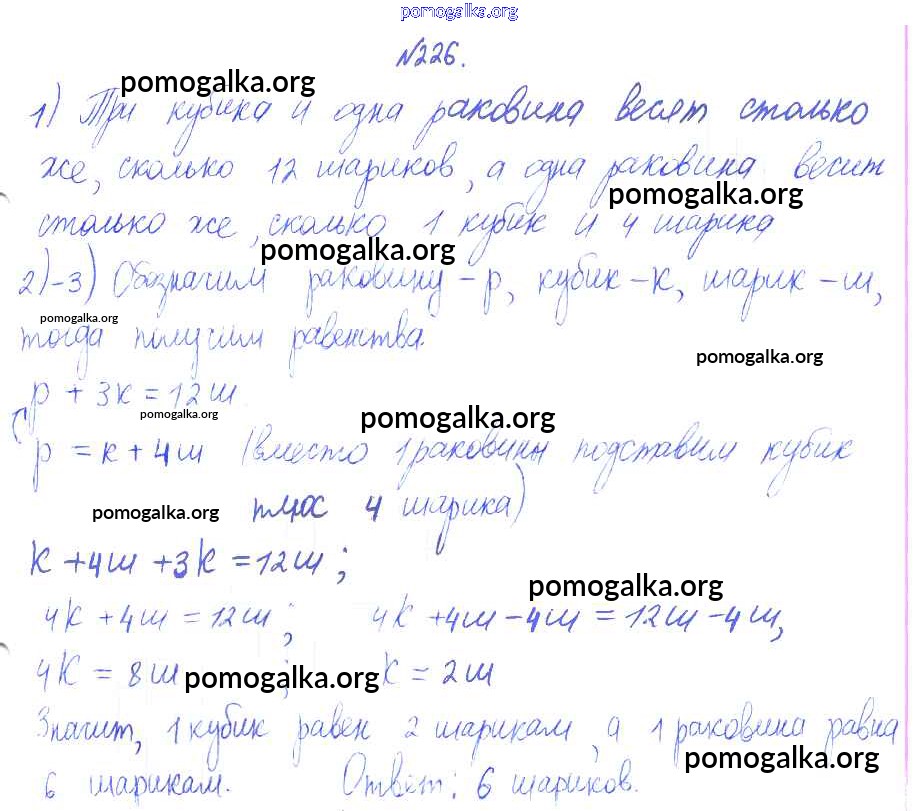 pomogalka.org
№226.
pomogalka.org
1) Три кубика и одна раковина весят столько
же, сколько 12 шариков, а одна раковина весит
pomogalka.org
столько же, сколько 1 кубик и 4 шарика
pomogalka.org
2)-3) Обозначим раковину - р, кубик - к, шарик - ш,
pomogalka.org
тогда получим равенства.
pomogalka.org
р + 3к = 12ш
pomogalka.org
pomogalka.org
р = к + 4ш (вместо 1 раковины подставим кубик
pomogalka.org плюс 4 шарика)
к + 4ш + 3к = 12ш;
pomogalka.org
4к + 4ш = 12ш; 4к + 4ш - 4ш = 12ш - 4ш,
4к = 8ш pomogalka.org; к = 2ш
Значит, 1 кубик равен 2 шарикам, а 1 раковина равна
pomogalka.org
6 шарикам. Ответ: 6 шариков.